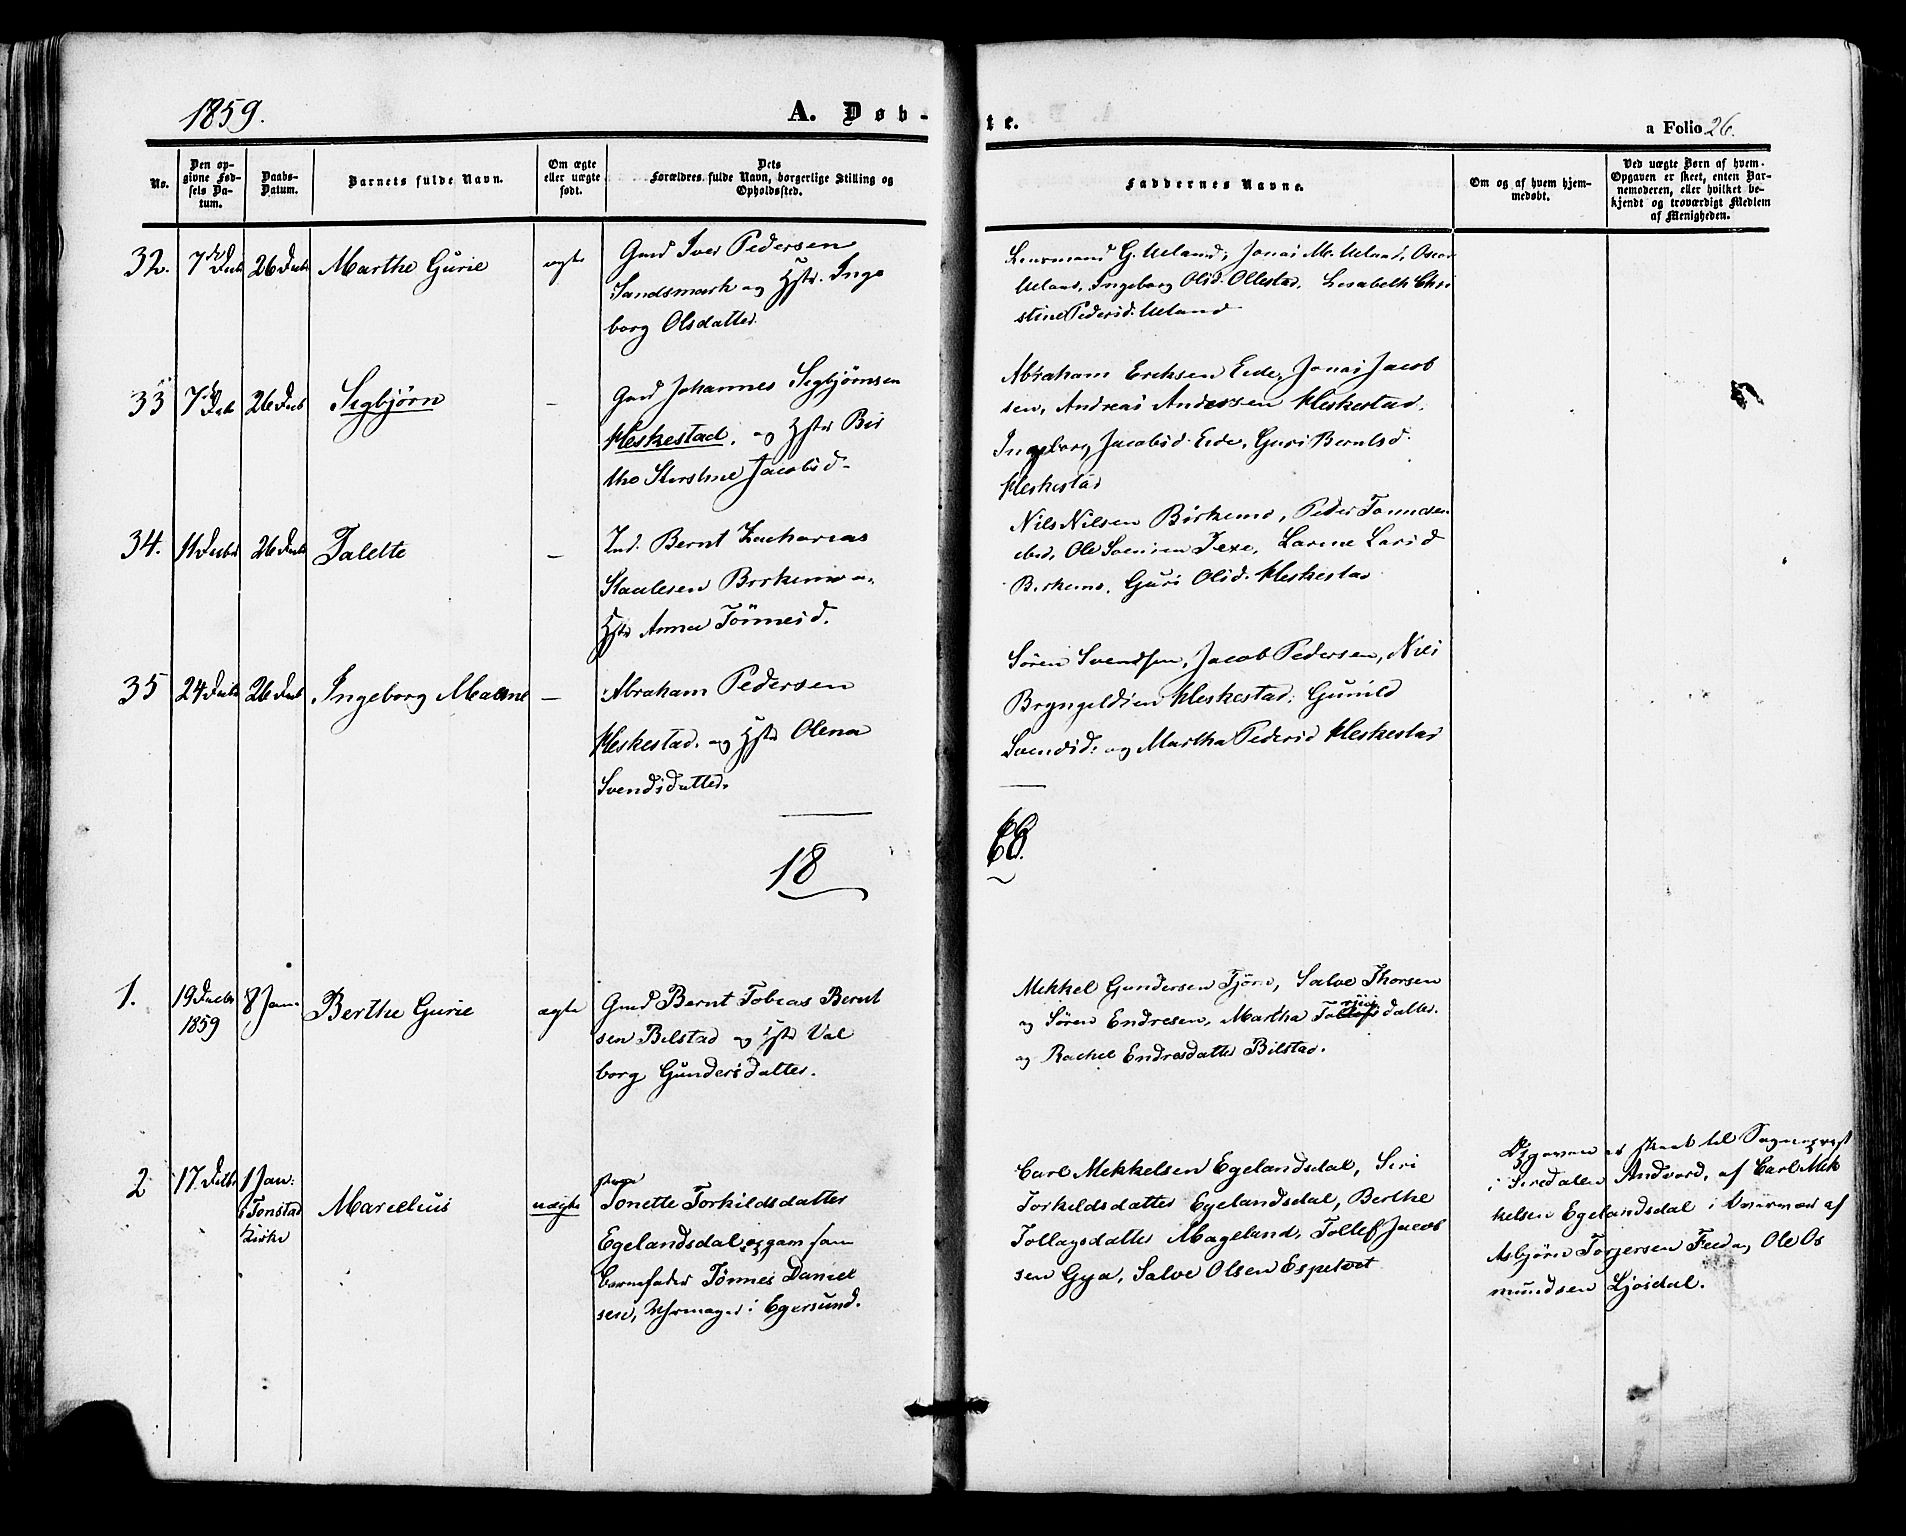 1859.
A. Døb-
te.
a Folio 26.
No.
Den op-
givne Fød-
sels Da-
tum.
Daabs-
Datum.
Barnets fulde Navn.
Om ægte
eller uægte
født.
Dets
Forældres fulde Navn, borgerlige Stilling og
Opholdssted.
Faddernes Navne.
Om og af hvem hjem-
medøbt.
Ved uægte Børn af hvem
Opgaven er skeet, enten Bar-
nemoderen, eller hvilket be-
kjendt og troværdigt Medlem
af Menigheden.
32.
7de Decb
26 Decb
Marthe Gurie
ægte
Gmd Iver Pedersen
Sandsmark og Hstr. Inge
borg Olsdatter.
Lensmand G. Ueland, Jonas M. Ueland,
Ueland, Ingeborg Olsd. Ollestad, Lisabeth Chri
stine Pedersd. Ueland
33
7de Decb
26 Decb
Segbjørn
–
Gmd Johannes Segbjørnsen
Heskestad. og Hstr Bir
the Serstine Jacobsd.
Abraham Ericksen Eide, Jonas Jacob
sen, Andreas Andersen Heskestad,
Ingeborg Jacobsd. Eide, Guri Berntsd.
Heskestad
34.
11 Decbr
26 Decb
Talette
–
Ind. Bernt Zacharias
Staalesen Birkemo o.
Hstr Anna Tönnesd.
Nils Nilsen Birkemo, Peder Tønnesen
ibid, Ole Svensen Texe, Larine Larsd
Birkemo, Guri Olsd. Heskestad
35
24 Decbr
26 Decb
Ingeborg Malene
–
Abraham Pedersen
Heskestad. og Hstr Olena
Svendsdatter.
Søren Svendsen, Jacob Pedersen, Nils
Bryngeldsen Heskestad, Gunild
Svendsd. og Martha Pedersd Heskestad
18
68.
1.
19 Decbr
1859
8 Jan.
Berthe Gurie
ægte
Gmd Bernt Tobias Bernt
sen Bilstad og Hstr Val
borg Gundersdatter.
Mikkel Gundersen Tjörn, Salve Thorsen
og Søren Endresen, Martha datter.
og Rachel Endresdatter Bilstad.
2
17. Decbr
1 Jan.
i Tonstad
Kirke
Marcelius
uægte
pige
Tonette Torkildsdatter
Egelandsdal, opgav som
barnefader Tønnes Daniel
sen, Uhrmager i Egersund.
Carl Mekkelsen Egelandsdal, Siri
Torkildsdatter Egelandsdal, Berthe
Tollagsdatter Mageland, Tollef Jacob
sen Gya, Salve Olsen Espetvet
Opgaven er skeet til Sognepræst
i Siredalen Andvord, af Carl Mek
kelsen Egelandsdal i Nærvær af
Asbjørn Torjersen Feed og Ole Os
mundsen Ljosdal.